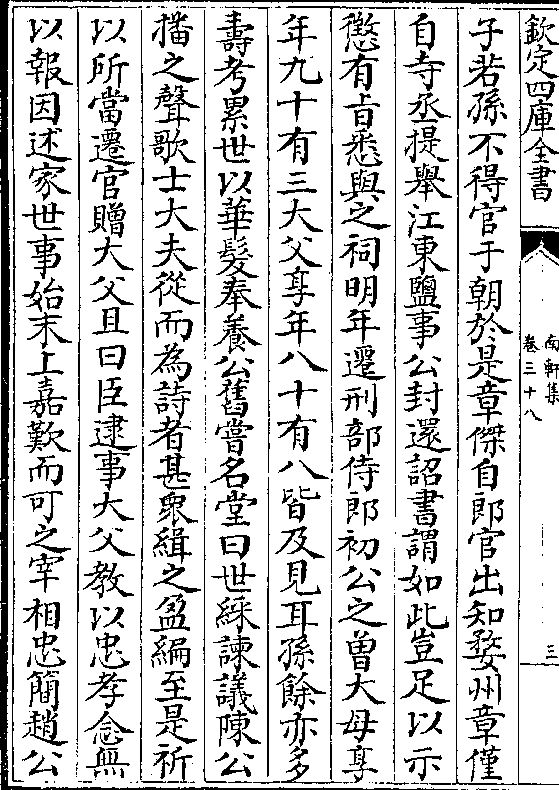 欽定四庫全書
南軒集
卷三十八
三
子若孫不得官于朝於是章傑自郎官出知婺州章僅
自寺丞提舉江東鹽事公封還詔書謂如此豈足以示
懲有㫖悉與之祠明年遷刑部侍郎初公之曾大母享
年九十有三大父享年八十有八皆及見耳孫餘亦多
壽考累世以華髮奉養公舊嘗名堂曰世綵諫議陳公
播之聲歌士大夫從而為詩者甚衆緝之盈編至是祈
以所當遷官贈大父且曰臣逮事大父教以忠孝念無
以報因述家世事始末上嘉歎而可之宰相忠簡趙公